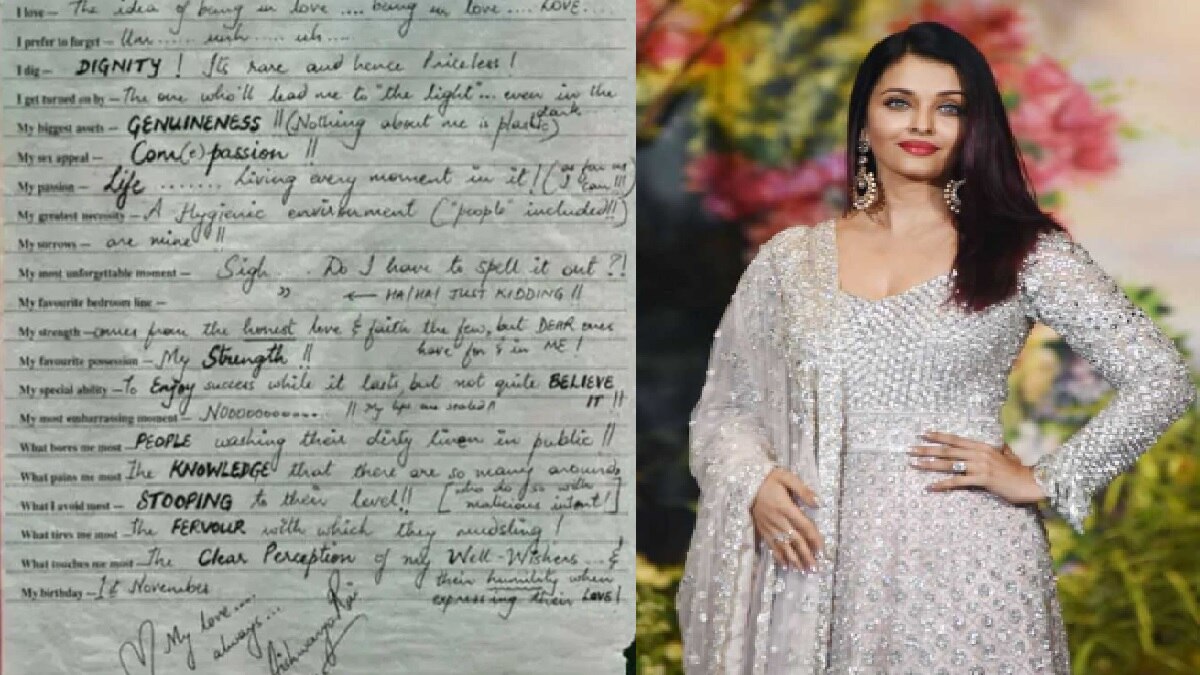 I love — The idea of being in love .... being in love .... LOVE....
I prefer to forget — Um ..... umh ..... uh.....
I dig — DIGNITY ! Its rare and hence Priceless !
I get turned on by — The one who'll lead me to "the light"... even in the dark
My biggest assets — GENUINENESS !! (Nothing about me is plastic)
My sex appeal — Com(e)passion !!
My passion — Life ....... Living every moment in it ! (as far as I can !!!)
My greatest necessity — A Hygienic environment ("people" included!!)
My sorrows — are mine !!
My most unforgettable moment — Sigh ... Do I have to spell it out ?!
My favourite bedroom line — " ← HA! HA! JUST KIDDING !!
My strength — comes from the honest love & faith the few, but DEAR ones have for & in ME !
My favourite possession — My Strength !!
My special ability — To Enjoy success while it lasts, but not quite BELIEVE IT !!
My most embarrassing moment — NOoooooooo.... !! My lips are sealed !!
What bores me most — PEOPLE washing their dirty linen in public !!
What pains me most — The KNOWLEDGE that there are so many around,
What I avoid most — STOOPING to their level!! [who do so with malicious intent!]
What tires me most — The FERVOUR with which they mudsling !
What touches me most — The Clear Perception of my Well-Wishers ... & their humility when expressing their LOVE!
My birthday — 1st November
My love....
always....
Aishwarya Rai